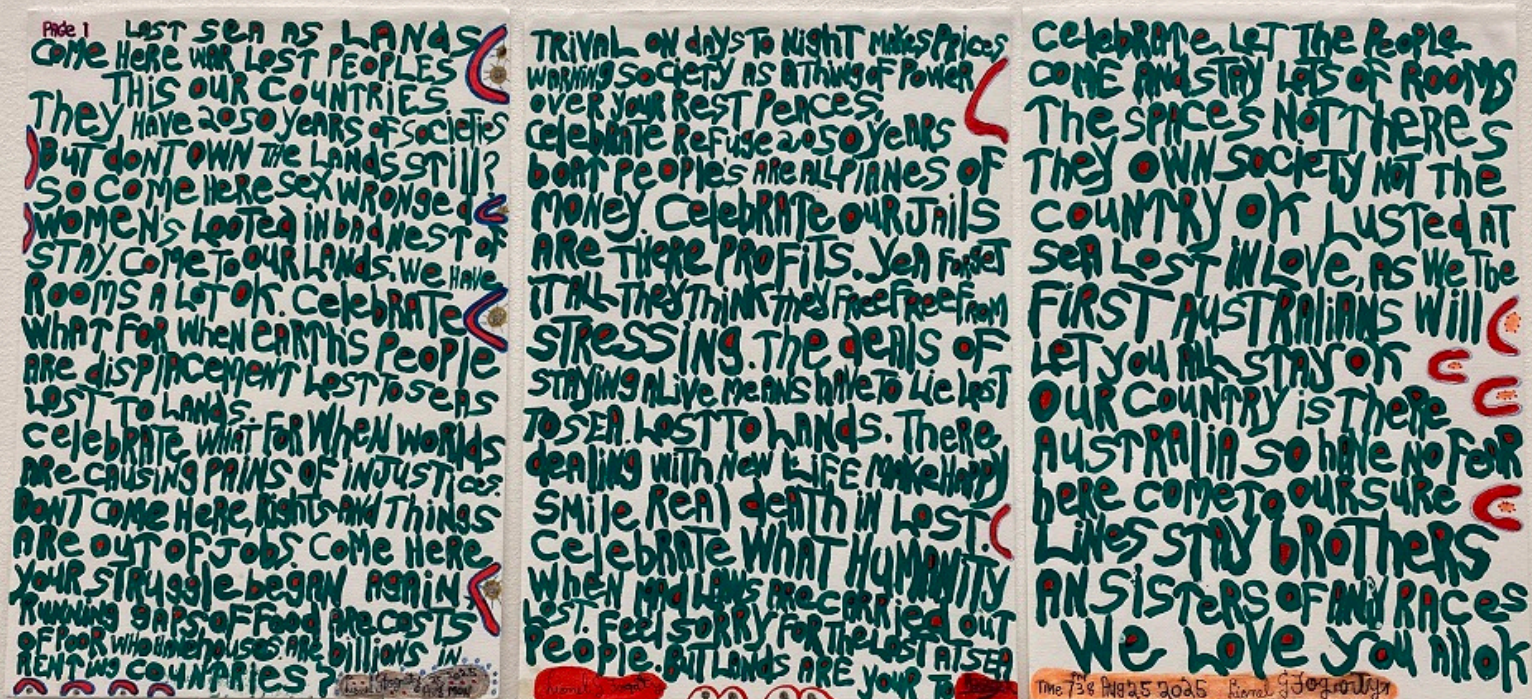 Page 1
LAST SEA AS LANDS
COME HERE WAR LOST PEOPLES
THIS OUR COUNTRIES
They HAVE 2050 years of SOCIETIES
BUT dONT OWN THE LANDS STILL?
SO COME HERE SEX WRONGED
WOMENS LOOTED IN bAdNEST OF
STAY. COME TO OUR LANDS. WE HAVE
ROOMS A LOT OK. CELEBRATE
WHAT FOR WHEN EARTHS PEOPLE
ARE dISPLACEMENT LOST TO SEAS
LOST TO LANDS.
CELEBRATE WHAT FOR WHEN WORLDS
ARE CAUSING PAINS OF INJUSTICES.
DONT COME HERE, RIGHTS AND THINGS
ARE OUT OF JOBS. COME HERE
yOUR STRUGGLE bEGAN AGAIN
RUNNING GAPS OF FOOD ARE COSTS
OF POOR WHO HAVE HOUSES ARE bILLIONS IN
RENTING COUNTRIES?
TRIVAL ON dAYS TO NIGHT MAKES PRICES
WARNING SOCIETY AS A THING OF POWER
OVER yOUR REST PEACES.
CELEBRATE REFUGE 2050 YEARS
bOAT PEOPLES ARE ALL PLANES OF
MONEY CELEBRATE OUR JAILS
ARE THERE PROFITS. YEA FORGET
IT ALL THEY THINK THEY FREE FREE FROM
STRESSING. THE dEALS OF
STAYING ALIVE MEANS HAVE TO LIE LOST
TO SEA. LOST TO LANDS. THERE
dEALING WITH NEW LIFE MAKE HAPPY
SMILE REAL dEATH IN LOST.
CELEBRATE WHAT HUMANITY
WHEN MAD LAWS ARE CARRIED OUT
LOST. FEEL SORRY FOR THE LOST AT SEA
PEOPLE. BUT LANDS ARE yOUR TO
Lionel G Fogarty
CELEBRATE. LET THE PEOPLE
COME AND STAY LOTS OF ROOMS
THE SPACES NOT THERES
THEY OWN SOCIETY NOT THE
COUNTRY OK LUSTED AT
SEA LOST IN LOVE, AS WE THE
FIRST AUSTRALIANS WILL
LET YOU ALL STAY OK
OUR COUNTRY IS THERE
AUSTRALIA SO HAVE NO FEAR
HERE COME TO OUR SURE
LINES STAY BROTHERS
AN SISTERS OF ANY RACES
WE LOVE YOU All OK
Time 7:38 AUG 25 2025 Lionel G Fogarty